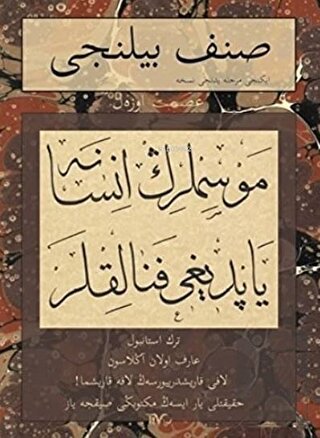 صنف بیلنجی
ایکنجی مرحله یدلنجی نسخه
عصمت اوزه‌ل
موسملرڭ انسانه
یاپدیغی فنالقلر
ترك استانبول
عارف اولان آڭلاسون
لافی قاریشدیریورسه‌ڭ لافه قاریشما!
حقیقتلی یار ایسه‌ڭ مكتوبڭی صیقجه یاز
TVG